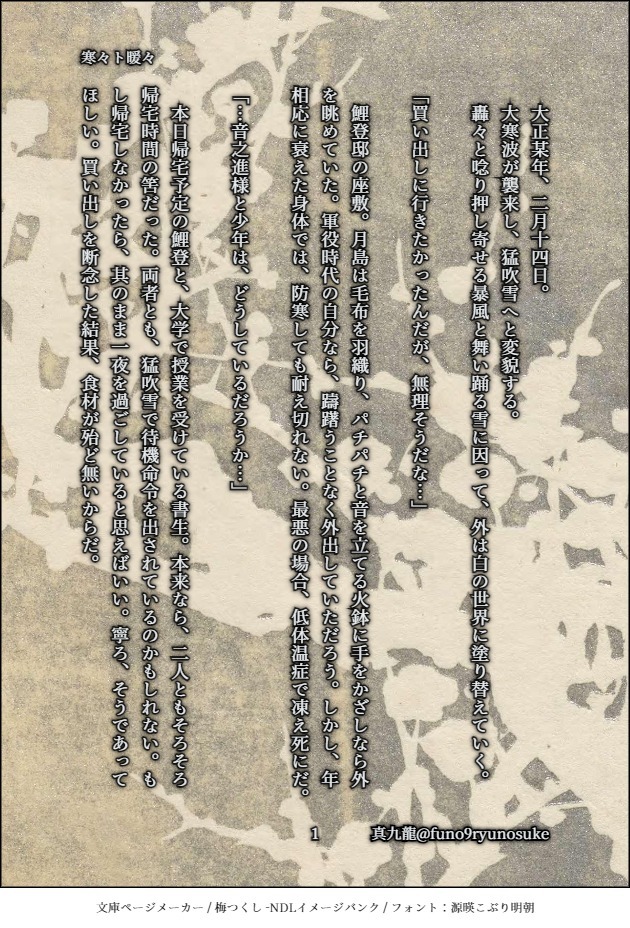 寒々ト暖々
大正某年、二月十四日。
大寒波が襲来し、猛吹雪へと変貌する。
轟々と唸り押し寄せる暴風と舞い踊る雪に因って、外は白の世界に塗り替えていく。
「買い出しに行きたかったんだが、無理そうだな…」
鯉登邸の座敷。月島は毛布を羽織り、パチパチと音を立てる火鉢に手をかざしなら外
を眺めていた。軍役時代の自分なら、躊躇うことなく外出していただろう。しかし、年
相応に衰えた身体では、防寒しても耐え切れない。最悪の場合、低体温症で凍え死にだ。
「…音之進様と少年は、どうしているだろうか…」
本日帰宅予定の鯉登と、大学で授業を受けている書生。本来なら、二人ともそろそろ
帰宅時間の筈だった。両者とも、猛吹雪で待機命令を出されているのかもしれない。も
し帰宅しなかったら、其のまま一夜を過ごしていると思えばいい。寧ろ、そうであって
ほしい。買い出しを断念した結果、食材が殆ど無いからだ。
1
真九龍@funo9ryunosuke
文庫ページメーカー / 梅つくし -NDLイメージバンク / フォント：源暎こぶり明朝